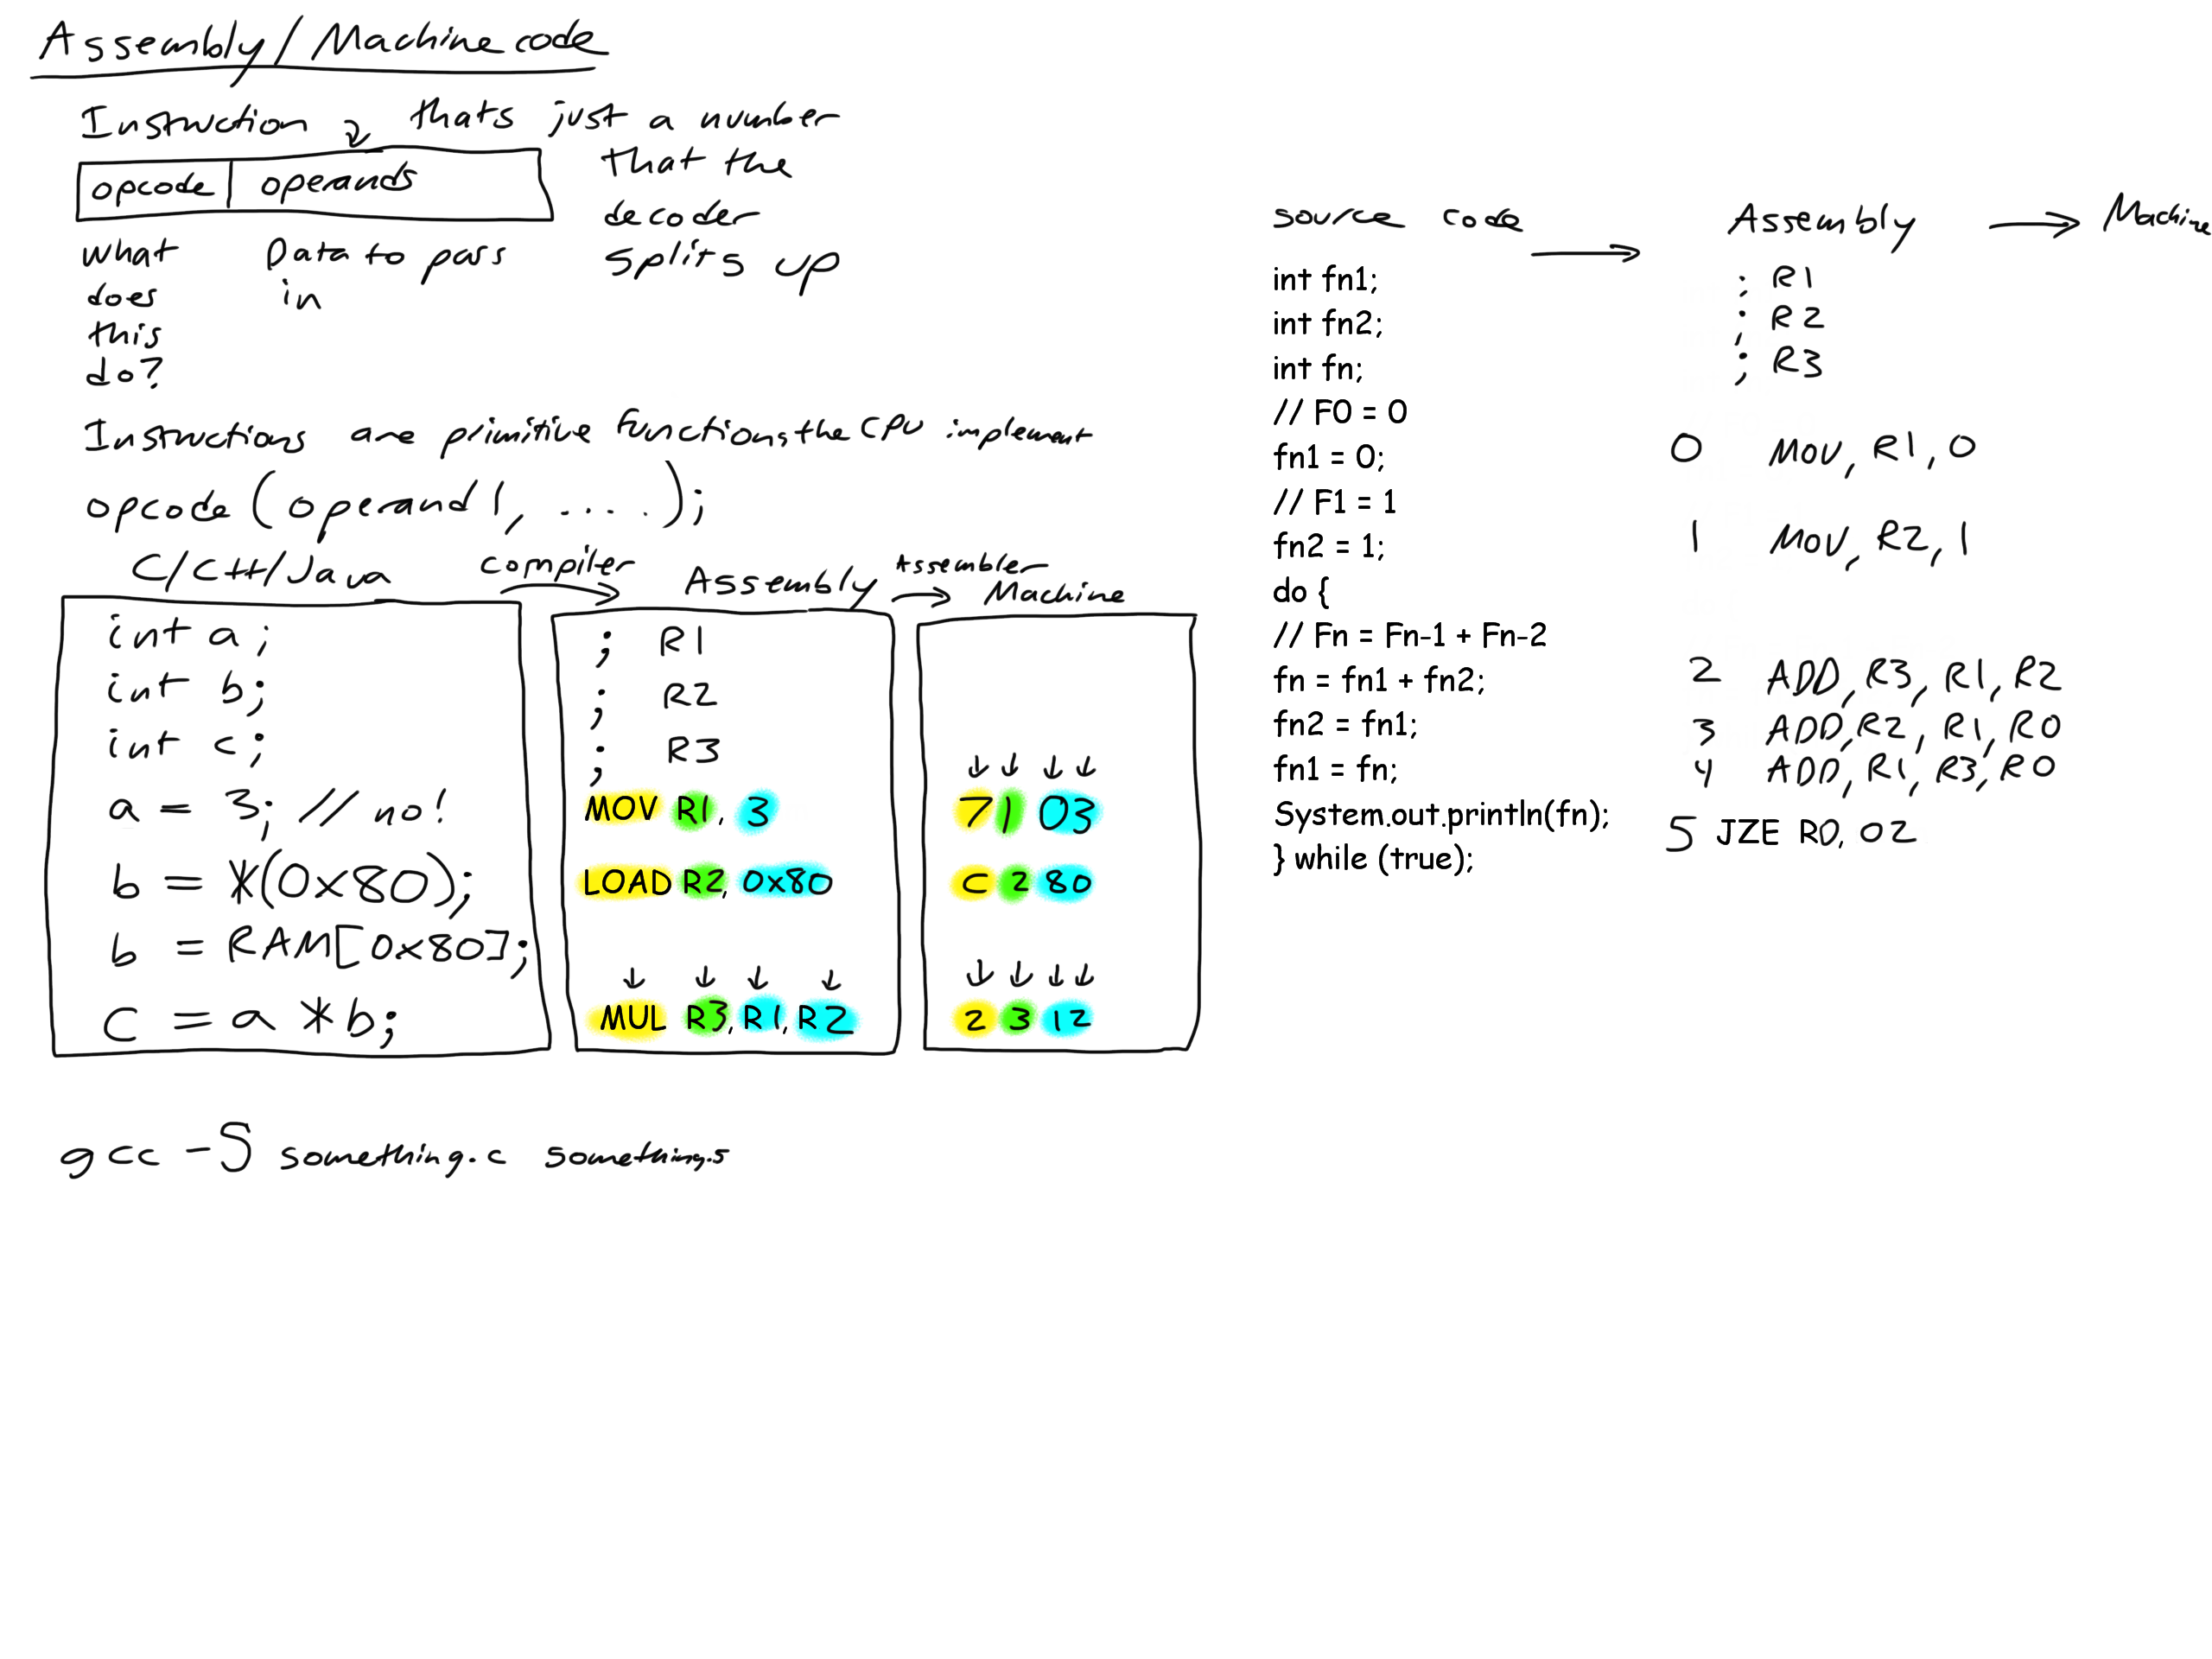 Assembly/Machine code
Instruction ↓ thats just a number
that the
decoder
splits up
opcode operands
what
does
this
do?
Data to pass
in
Instructions are primitive functions the CPU implement
opcode (operand 1, ....);
C/C++/Java
compiler
Assembly
Assembler
Machine
int a;
int b;
int c;
a = 3; // no!
b = *(0x80);
b = RAM[0x80];
c = a * b;
; R1
; R2
; R3
MOV R1, 3
LOAD R2, 0x80
↓ ↓ ↓ ↓
MUL R3, R1, R2
↓ ↓ ↓ ↓
7 1 03
C 2 80
↓ ↓ ↓ ↓
2 3 12
gcc -S something.c something.s
source code
int fn1;
int fn2;
int fn;
// F0 = 0
fn1 = 0;
// F1 = 1
fn2 = 1;
do {
// Fn = Fn-1 + Fn-2
fn = fn1 + fn2;
fn2 = fn1;
fn1 = fn;
System.out.println(fn);
} while (true);
Assembly
; R1
; R2
; R3
0 MOV, R1, 0
1 MOV, R2, 1
2 ADD, R3, R1, R2
3 ADD, R2, R1, R0
4 ADD, R1, R3, R0
5 JZE R0, 02
Machine